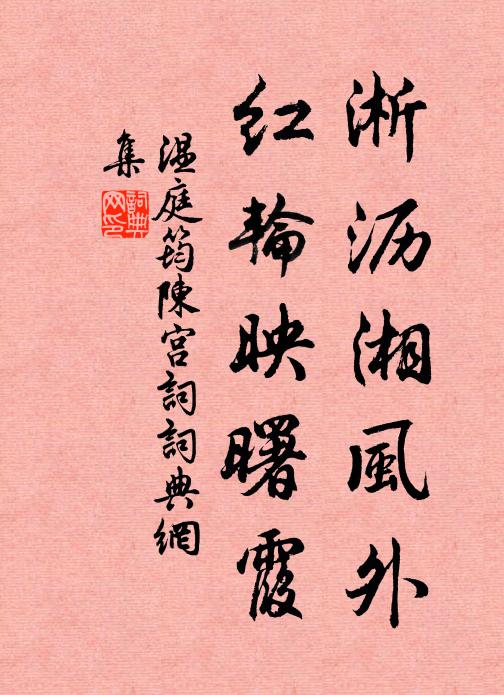 淅沥湘風外
紅輪映曙霞
温庭筠陳宮詞詞典網
集
詞典网印